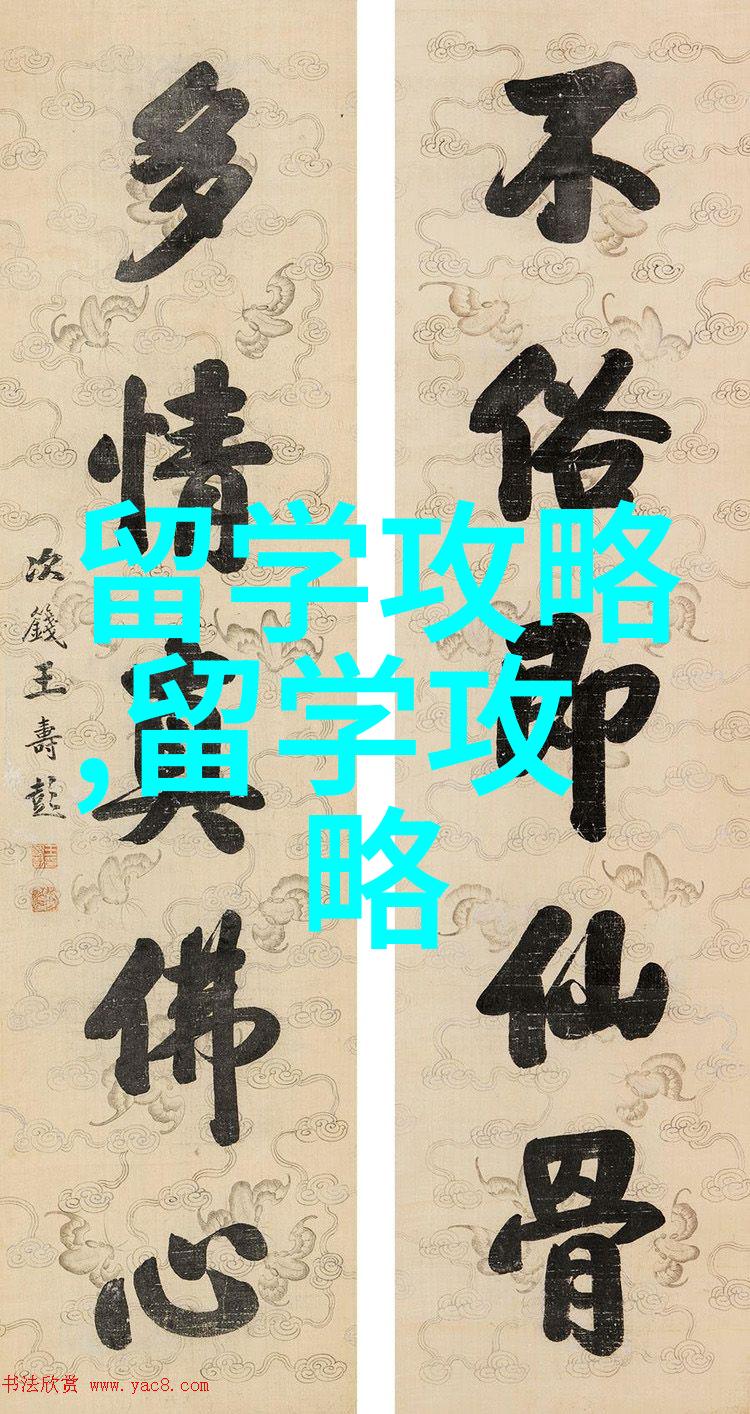 不俗即仙骨
多情真佛心
次籛王壽彭
留学攻略
,留学攻
略
书法欣赏 www.yac8.com